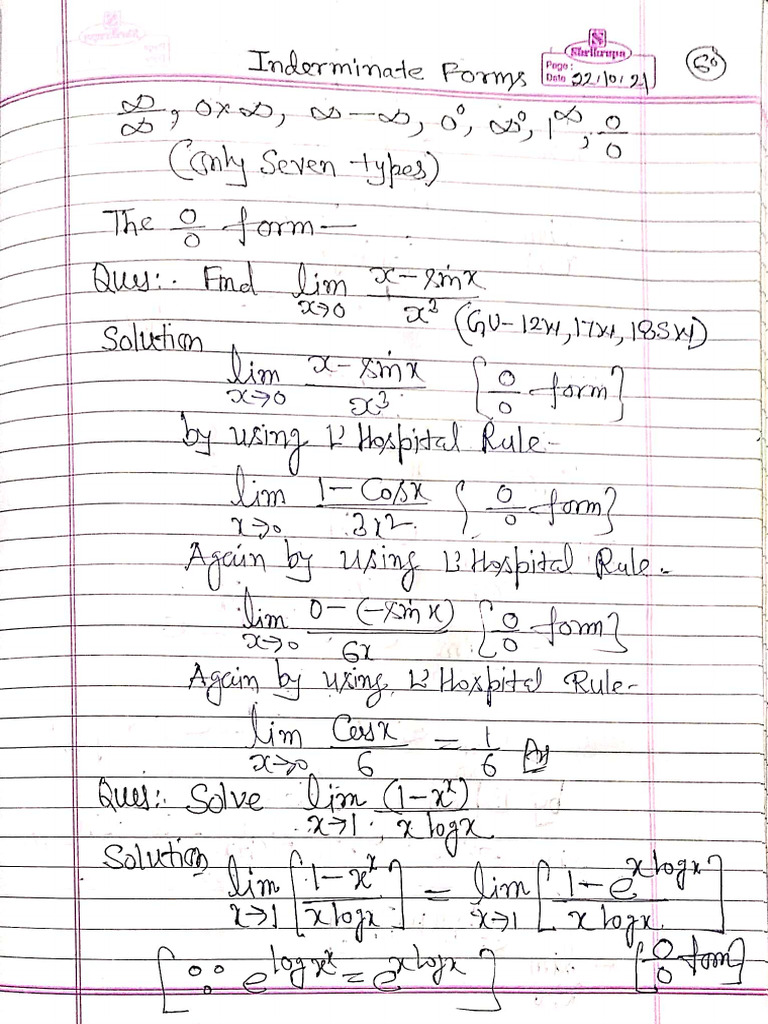 Inderminate Forms
Shrikrupa
Page:
Date 22/10/21
50
∞/∞, 0×∞, ∞-∞, 0⁰, ∞⁰, 1^∞, 0/0
(only Seven types)
The 0/0 form—
Ques:. Find lim x→0 (x-sinx)/x³ (GU-12M, 17M, 18SM)
Solution
lim x→0 (x-sinx)/x³ {0/0 form}
by using L' Hospital Rule-
lim x→0 (1-Cosx)/3x² {0/0 form}
Again by using L' Hospital Rule-
lim x→0 (0-(-sinx))/6x {0/0 form}
Again by using L' Hospital Rule-
lim x→0 Cosx/6 = 1/6 Ans
Ques:. Solve lim x→1 (1-x^x)/(x logx)
Solution
lim x→1 [(1-x^x)/(x logx)] = lim x→1 [(1-e^(x logx))/(x logx)]
[∵ e^(logx^x) = e^(x logx)] [0/0 form]